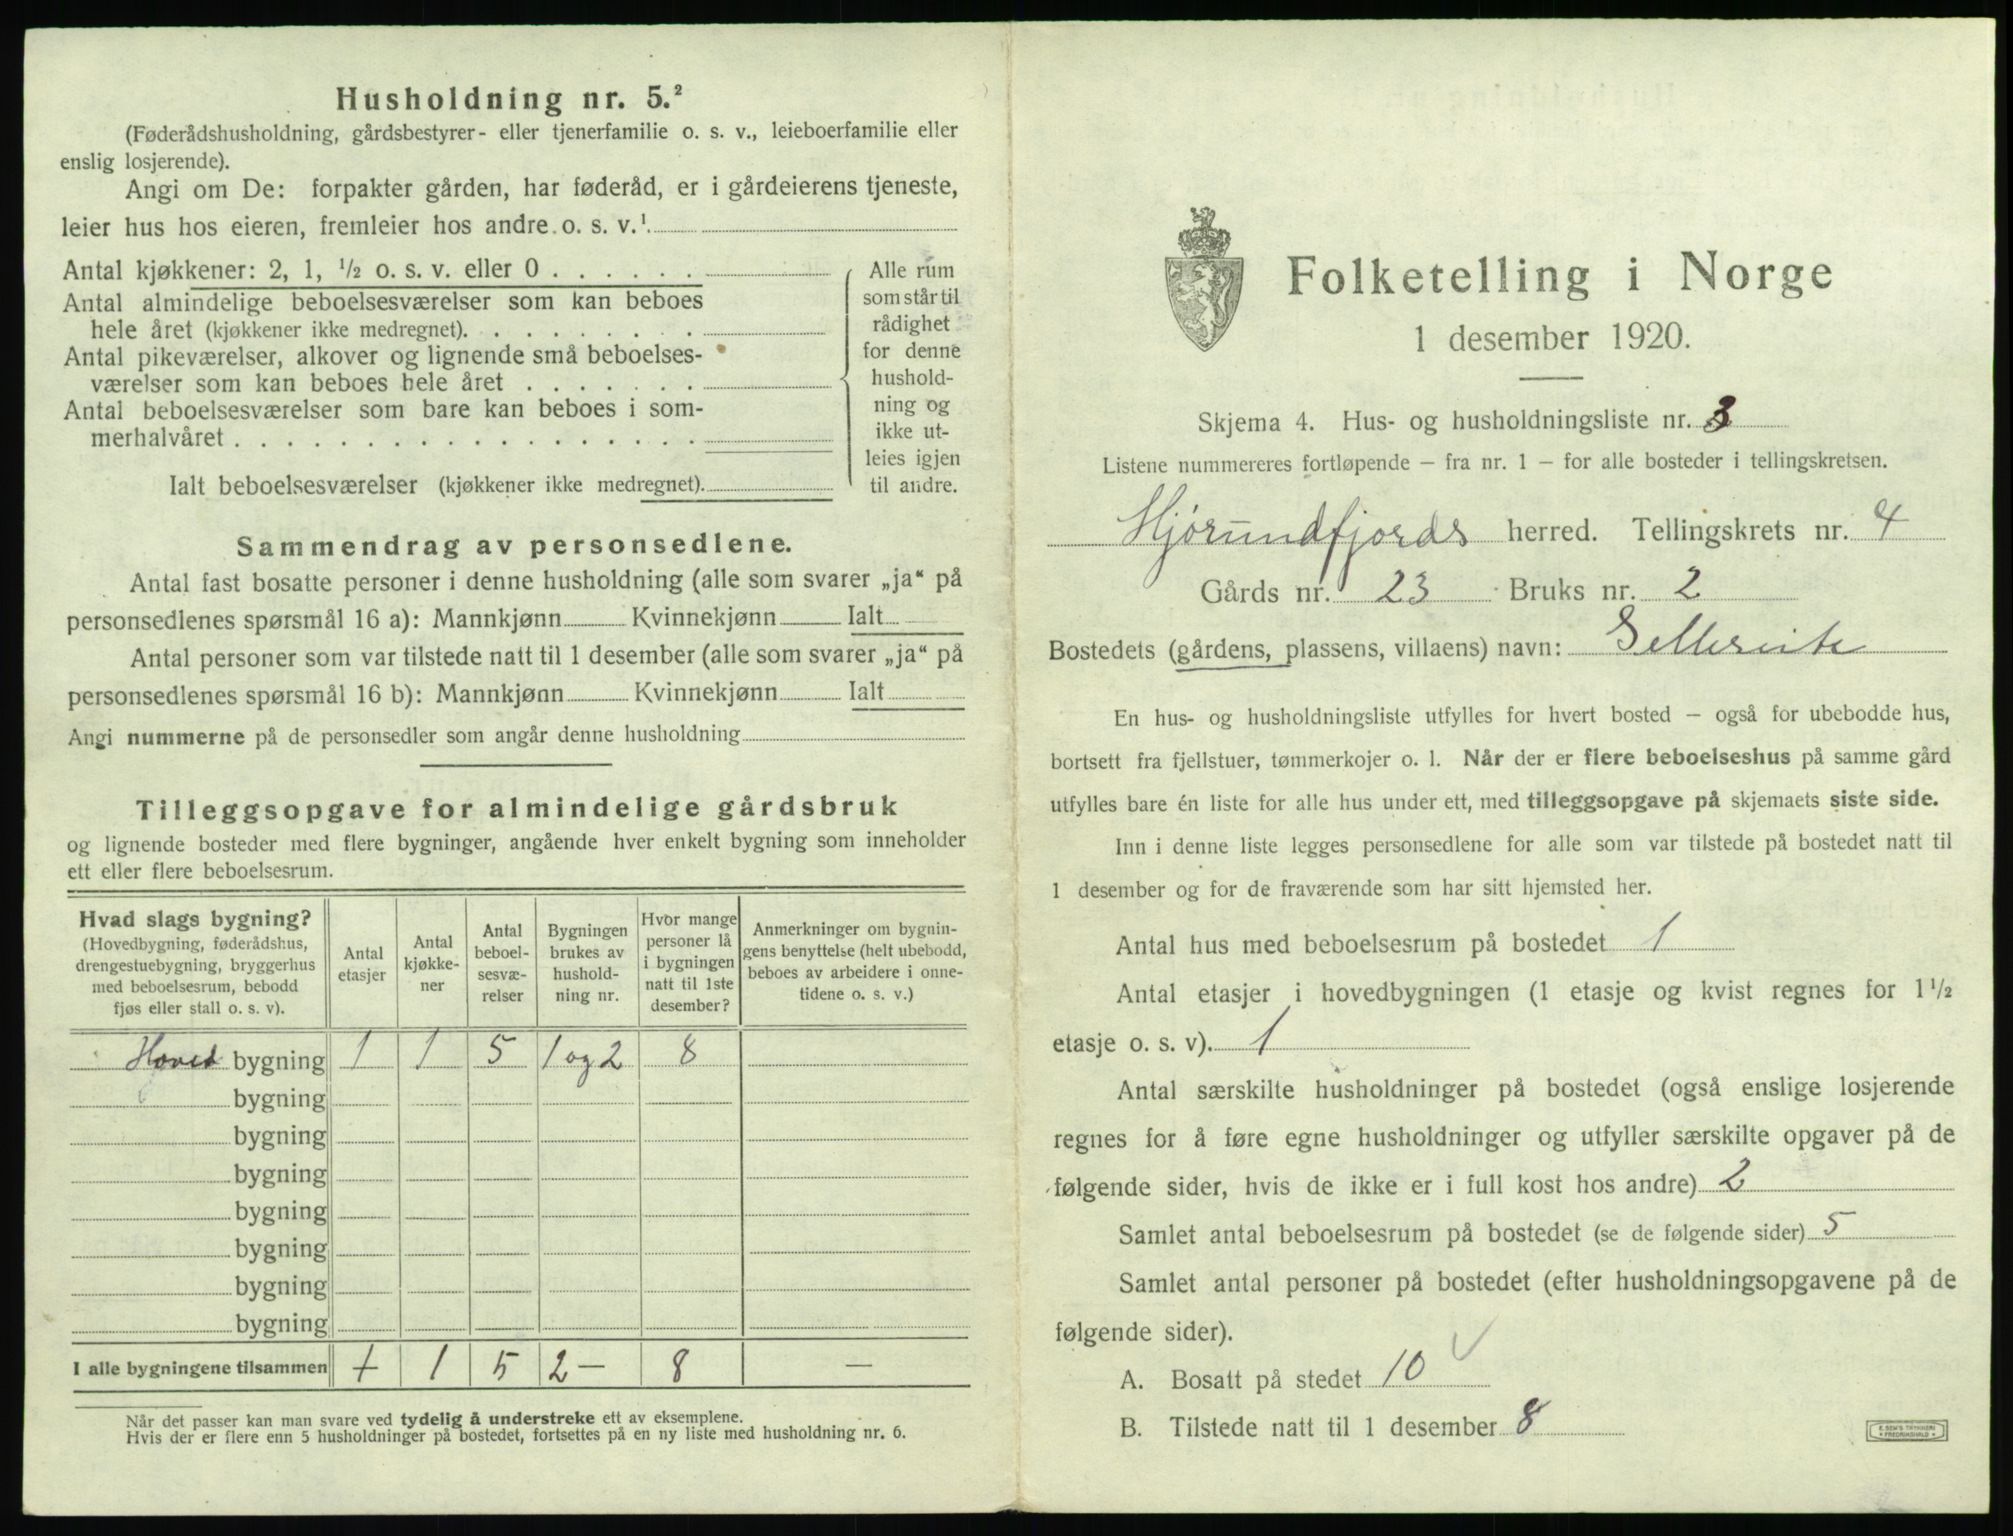 Husholdning nr. 5.²
(Føderådshusholdning, gårdsbestyrer- eller tjenerfamilie o. s. v., leieboerfamilie eller
enslig losjerende).
Angi om De: forpakter gården, har føderåd, er i gårdeierens tjeneste,
leier hus hos eieren, fremleier hos andre o. s. v.¹
Antal kjøkkener: 2, 1, ½ o. s. v. eller 0 . . . . . .
Antal almindelige beboelsesværelser som kan beboes
hele året (kjøkkener ikke medregnet). . . . . . . . .
Antal pikeværelser, alkover og lignende små beboelses-
værelser som kan beboes hele året . . . . . . .
Antal beboelsesværelser som bare kan beboes i som-
merhalvåret . . . . . . . . . . . . . . . . . .
Ialt beboelsesværelser (kjøkkener ikke medregnet).
Alle rum
som står til
rådighet
for denne
hushold-
ning og
ikke ut-
leies igjen
til andre.
Sammendrag av personsedlene.
Antal fast bosatte personer i denne husholdning (alle som svarer „ja“ på
personsedlenes spørsmål 16 a): Mannkjønn Kvinnekjønn Ialt
Antal personer som var tilstede natt til 1 desember (alle som svarer „ja“ på
personsedlenes spørsmål 16 b): Mannkjønn Kvinnekjønn Ialt
Angi nummerne på de personsedler som angår denne husholdning
Tilleggsopgave for almindelige gårdsbruk
og lignende bosteder med flere bygninger, angående hver enkelt bygning som inneholder
ett eller flere beboelsesrum.
Hvad slags bygning?
(Hovedbygning, føderådshus,
drengestuebygning, bryggerhus
med beboelsesrum, bebodd
fjøs eller stall o. s. v).
Antal
etasjer
Antal
kjøkke-
ner
Antal
beboel-
sesvæ-
relser
Bygningen
brukes av
hushold-
ning nr.
Hvor mange
personer lå
i bygningen
natt til 1ste
desember?
Anmerkninger om bygnin-
gens benyttelse (helt ubebodd,
beboes av arbeidere i onne-
tidene o. s. v.)
Hoved bygning 1 1 5 1 og 2 8
bygning
bygning
bygning
bygning
bygning
bygning
bygning
I alle bygningene tilsammen + 1 5 2 — 8 —
Når det passer kan man svare ved tydelig å understreke ett av eksemplene.
Hvis der er flere enn 5 husholdninger på bostedet, fortsettes på en ny liste med husholdning nr. 6.
Folketelling i Norge
1 desember 1920.
Skjema 4. Hus- og husholdningsliste nr. 3
Listene nummereres fortløpende – fra nr. 1 – for alle bosteder i tellingskretsen.
Hjørundfjords herred. Tellingskrets nr. 4
Gårds nr. 23 Bruks nr. 2
Bostedets (gårdens, plassens, villaens) navn:
En hus- og husholdningsliste utfylles for hvert bosted – også for ubebodde hus,
bortsett fra fjellstuer, tømmerkojer o. l. Når der er flere beboelseshus på samme gård
utfylles bare én liste for alle hus under ett, med tilleggsopgave på skjemaets siste side.
Inn i denne liste legges personsedlene for alle som var tilstede på bostedet natt til
1 desember og for de fraværende som har sitt hjemsted her.
Antal hus med beboelsesrum på bostedet 1
Antal etasjer i hovedbygningen (1 etasje og kvist regnes for 1½
etasje o. s. v). 1
Antal særskilte husholdninger på bostedet (også enslige losjerende
regnes for å føre egne husholdninger og utfyller særskilte opgaver på de
følgende sider, hvis de ikke er i full kost hos andre) 2
Samlet antal beboelsesrum på bostedet (se de følgende sider) 5
Samlet antal personer på bostedet (efter husholdningsopgavene på de
følgende sider).
A. Bosatt på stedet 10
B. Tilstede natt til 1 desember 8